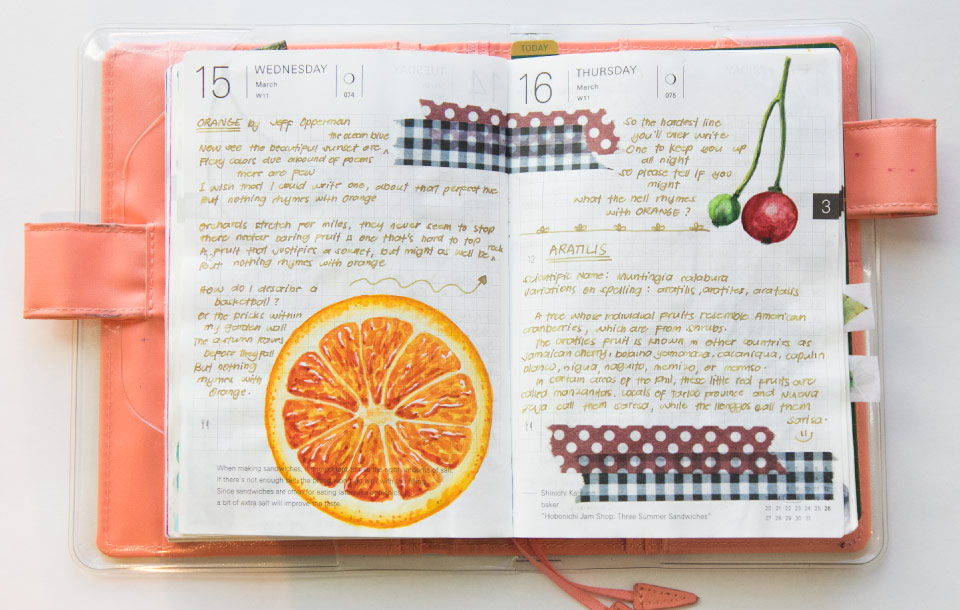 15
WEDNESDAY
March
W11
074
ORANGE by Jeff Opperman
the ocean blue
Now see the beautiful sunset are
Fiery colors due abound of poems
there are few
I wish that I could write one, about that perfect hue
But nothing rhymes with orange
Orchards stretch for miles, they never seem to stop
there nectar baring fruit is one that's hard to top
A fruit that justifies a sonnet, but might as well be rock
For nothing rhymes with orange
How do I describe a
basketball?
Or the bricks within
my garden wall
The autumn leaves
before they fall
But nothing
rhymes with
orange.
When making sandwiches,
if there's not enough salt, the
Since sandwiches are often for eating later
a bit of extra salt will improve the taste.
TODAY
16
THURSDAY
March
W11
075
So the hardest line
you'll ever write
One to keep you up
all night
so please tell if you
might
what the hell rhymes
with ORANGE?
3
12
ARATILIS
Scientific Name: Muntingia calabura
Variations on spelling: aratilis, aratiles, aratelis
A tree whose individual fruits resemble American
cranberries, which are from shrubs.
The aratiles fruit is known in other countries as
Jamaican cherry, bolaina yamanaza, cacaniqua, capulin
blanco, nigua, niguito, memizo, or memiso.
In certain areas of the Phil, these little red fruits are
called manzanitas. Locals of Tarlac province and Nueva
call them sarisa, while the Ilonggos call them
sarisa.
Shinichi
baker
"Hobonichi Jam Shop: Three Summer Sandwiches"
20 21 22 23 24 25 26
27 28 29 30 31